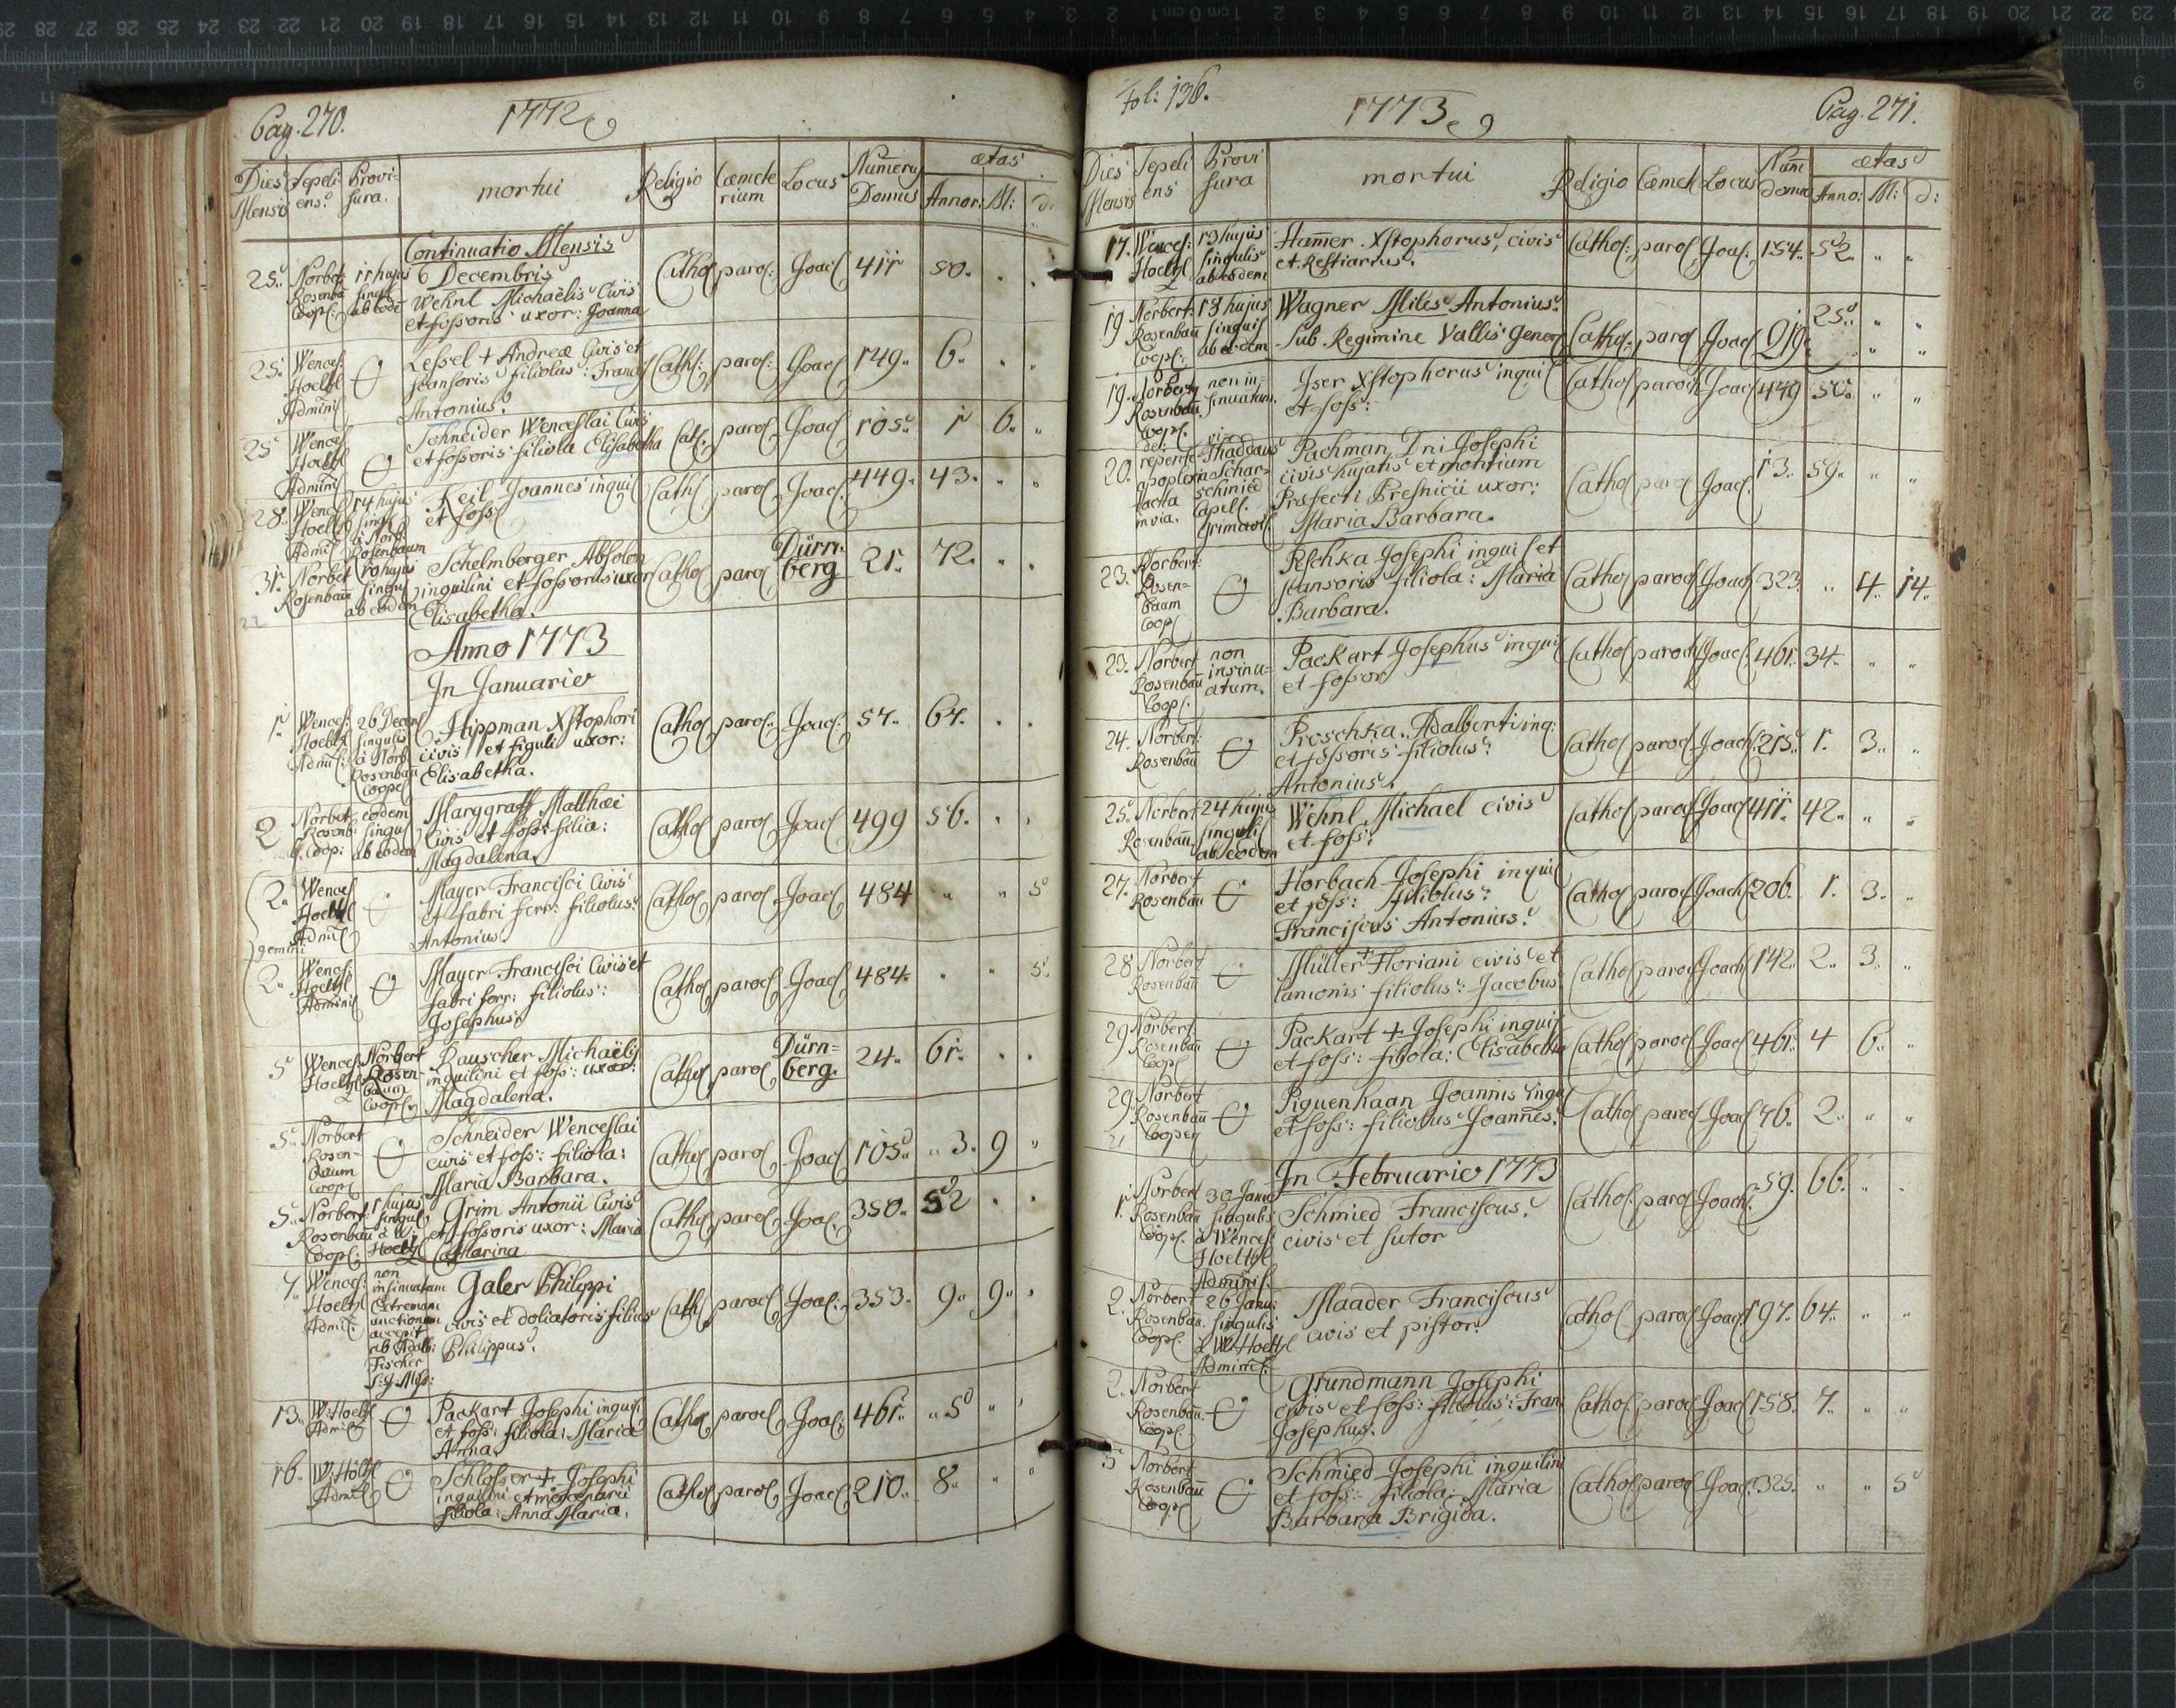 Pag. 270.
1772
Dies Mensis
Sepeliens
Provisura.
mortui
Religio
Cæmeterium
Locus
Numerus Domus
ætas
Annor:
M:
d:
Continuatio Mensis
Decembris
25. Norbert Rosenbau Coop: 11 hujus singul ab eode
Wehnl Michaëlis Civis
et fossoris uxor: Joanna
Cathol parol: Joach 411 50.
25. Wencesl: Hoeltzl Adminis
Lessel + Andreæ Civis et
scansoris filiolus: Franc:
Antonius.
Cath: parol: Joach 149. 6.
25 Wencesl Hoeltzl Admini
Schneider Wenceslai Civis
et fossoris filiola Elisabetha
Cath. parol Joach 105. 1 6.
28. Wencesl Hoeltzl Admin 14 hujus sing. à Norb. Rosenbaum
Keil Joannes inquil
et foss
Cath parol Joach 449. 43.
31. Norbert Rosenbau 10 hujus singul ab eodem
Schelmberger Absolon
inquilini et fossoris uxor
Elisabetha.
Cathol parol Dürrnberg 21. 72.
Anno 1773
In Januario
1. Wencesl: Hoeltzl Admin: 26 Decem singulis à Norb. Rosenbau Coope
Hippman Xstophori
civis et figuli uxor:
Elisabetha.
Cathol parol: Joach: 57. 67.
2 Norbert Rosenb: Coop: eodem singul ab eodem
Marggraff Matthæi
Civis et foss: filia:
Magdalena.
Cathol parol Joach 499 56.
2. Wencesl Hoeltzl Admin
Mayer Francisci Civis
et fabri ferr: filiolus:
Antonius.
Cathol parol Joach 484 5
gemini
2. Wencesl: Hoeltzl Adminis
Mayer Francisci Civis et
fabri ferr: filiolus:
Josephus.
Cathol paroch Joach 484. 5
5 Wencesl Hoeltzl Norbert Rosenbaum Coop
Rauscher Michaëlis
inquilini et foss: uxor:
Magdalena.
Cathol parol Dürnberg. 24. 61.
5. Norbert Rosenbaum Coop
Schneider Wenceslai
civis et foss: filiola:
Maria Barbara.
Cathol parol Joach 105. 3. 9
5. Norbert: Rosenbau Coop: 1 hujus singul à W: Hoeltzl
Grim Antonii Civis
et fossoris uxor: Maria
Catharina
Cathol parol Joach. 350. 52
7. Wencesl: Hoeltzl Admin: non insinuatam Extremam unctionem accepit ab Adalb: Fischer S: J: Miss:
Galer Philippi
civis et doliatoris filius
Philippus.
Cath paroch Joach: 353. 9. 9.
13. W: Hoeltzl Admin
Packart Josephi inquil.
et foss: filiola: Maria
Anna.
Cathol paroch Joach: 461. 5
16. W: Höltzl Admin
Schlosser + Josephi
inquilini et
filiola: Anna Maria.
Cathol paroch Joach 210. 8.
Fol: 136.
1773
Pag. 271.
Dies Mensis
Sepeliens
Provisura
mortui
Religio
Cæmeter
Locus
Num domus
ætas
Anno:
M:
d:
17. Wencesl: Hoeltzl 13 hujus singulis ab eodem
Hamer Xstophorus, civis
et Restiarius.
Cathol: parol Joach: 154. 52.
19 Norbert: Rosenbau Coop: 13 hujus singulis ab eodem
Wagner Miles Antonius.
sub Regimine Vallis Gener
Cathol: parol Joach 919. 25.
19. Norbert Rosenbau Coop. non insinuatam.
Iser Xstophorus inquil
et foss:
Cathol paroch Joach 449 50.
20. repente apoplexia tacta in via. Thaddæus Scharschmied Capell.
Pachman Dni Josephi
civis hujatis et montium
Præfecti Presnicii uxor:
Maria Barbara.
Cathol parol Joach: 13. 59.
23. Norbert: Rosenbaum Coop
Peschka Josephi inquil et
scansoris filiola: Maria
Barbara.
Cathol paroch Joach 323. 4. 14.
23. Norbert Rosenbau Coop. non insinuatum.
Packart Josephus inquil
et fossor
Cathol paroch Joach: 461. 34.
24. Norbert: Rosenbau
Proschka Adalberti inq:
et fossoris filiolus:
Antonius.
Cathol paroch Joach 215. 1. 3.
25. Norbert Rosenbau 24 hujus singulis ab eodem
Wehnl Michael civis
et foss:
Cathol paroch Joach 411. 42.
27. Norbert Rosenbau
Horbach Josephi inquil
et foss: filiolus:
Franciscus Antonius.
Cathol paroch Joach 206. 1. 3.
28 Norbert Rosenbau
Müller + Floriani civis et
lanionis filiolus: Jacobus
Cathol paroch Joach 142. 2. 3.
29 Norbert: Rosenbau Coop
Packart + Josephi inquil
et foss: filiola: Elisabetha
Cathol paroch Joach 461. 4 6.
29 Norbert Rosenbau Cooper
Piguenhaan Joannis inqu
et foss: filiolus Joannes.
Cathol paroch Joach 76. 2.
In Februario 1773
1. Norbert Rosenbau Coop. 30 Janu singulis à Wencesl Hoeltzl Adminis.
Schmied Franciscus.
civis et sutor
Cathol. paroch Joach. 59. 66.
2. Norbert Rosenbau. Coop. 26 Janu: singulis à W: Hoeltzl Adminis:
Maader Franciscus
civis et pistor.
Cathol paroch Joach 197. 64.
2. Norbert Rosenbau. Coop
Grundmann Josephi
civis et foss: filiolus: Fran
Josephus.
Cathol. paroch Joach 158. 7.
5 Norbert Rosenbau Coop
Schmied Josephi inquilini
et foss: filiola: Maria
Barbara Brigida.
Cathol paroch Joach. 325. 5